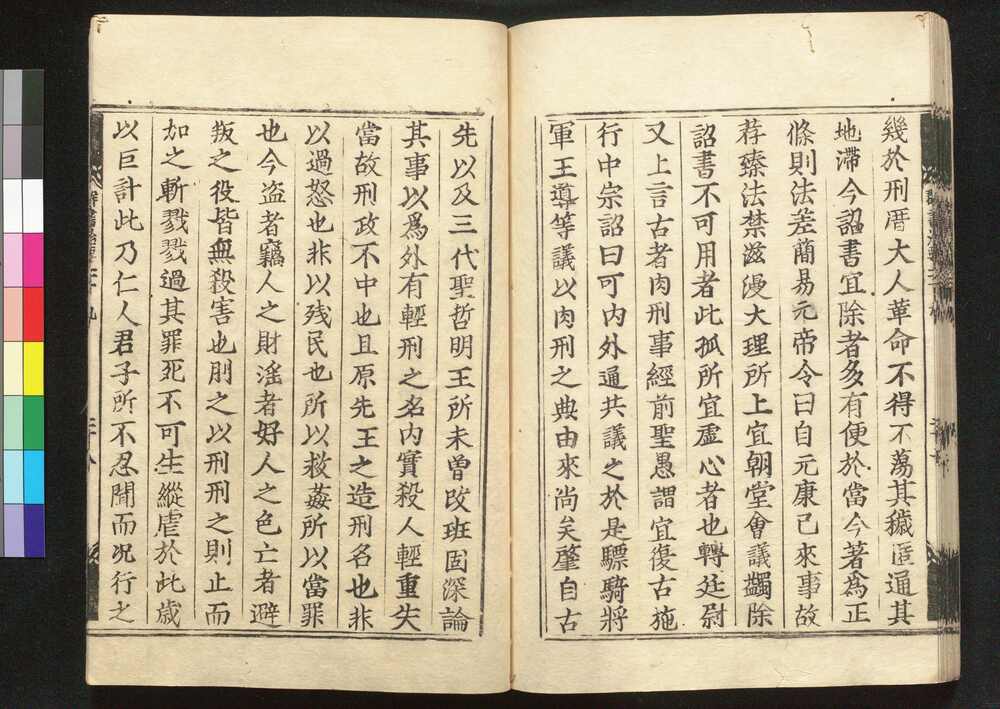 幾於刑厝大人革命不得不蕩其穢匿通其
地滯今詔書宜除者多有便於當今著爲正
條則法差簡易元帝令曰自元康已來事故
荐臻法禁滋漫大理所上宜朝堂會議蠲除
詔書不可用者此孤所宜虛心者也轉廷尉
又上言古者肉刑事經前聖愚謂宜復古施
行中宗詔曰可內外通共議之於是驃騎將
軍王導等議以肉刑之典由來尚矣肇自古
先以及三代聖哲明王所未曾改班固深論
其事以爲外有輕刑之名內實殺人輕重失
當故刑政不中也且原先王之造刑名也非
以過怒也非以殘民也所以救姦所以當罪
也今盜者竊人之財淫者好人之色亡者避
叛之役皆無殺害也刖之以刑刑之則止而
加之斬戮戮過其罪死不可生縱虐於此歲
以巨計此乃仁人君子所不忍聞而况行之
群書治要二十九